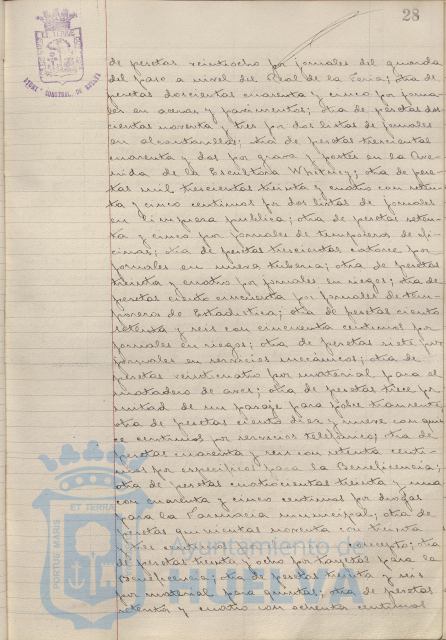 28
de pesetas veintiocho por jornales del guarda
del paso a nivel del Real de la Feria; otra de
pesetas doscientas cuarenta y cinco por jorna-
les en aceras y pavimentos; otra de pesetas dos-
cientas noventa y tres por dos listas de jornales
en alcantarillas; otra de pesetas trescientas
cuarenta y dos por grava y portes en la Ave-
nida de la Escultora Whitney; otra de pese-
tas mil trescientas treinta y cuatro con seten-
ta y cinco centimos por dos listas de jornales
en limpieza publica; otra de pesetas seten-
ta y cinco por jornales de temporeros de ofi-
cinas; otra de pesetas trescientas catorce por
jornales en nueva tuberia; otra de pesetas
treinta y cuatro por jornales en riegos; otra de
pesetas ciento cincuenta por jornales de tem-
poreros de Estadistica; otra de pesetas ciento
setenta y seis con cincuenta centimos por
jornales en riegos; otra de pesetas siete por
jornales en servicios mecanicos; otra de
pesetas veinticuatro por material para el
matadero de aves; otra de pesetas trece por
mitad de un pasaje para pobre transeunte
otra de pesetas ciento diez y nueve con quin-
ce centimos por servicios telefonicos; otra de
pesetas cuarenta y seis con setenta centi-
mos por especificos para la Beneficencia;
otra de pesetas cuatrocientas treinta y una
con cuarenta y cinco centimos por drogas
para la Farmacia municipal; otra de
pesetas quinientas noventa con treinta
y tres centimos concepto; otra
de pesetas treinta y ocho por tarjetas para la
Beneficencia; otra de pesetas treinta y seis
por material para quintas; otra de pesetas
setenta y cuatro con ochenta centimos
Ayuntamiento de
HUELVA
PORTUS MARIS ET TERRAE